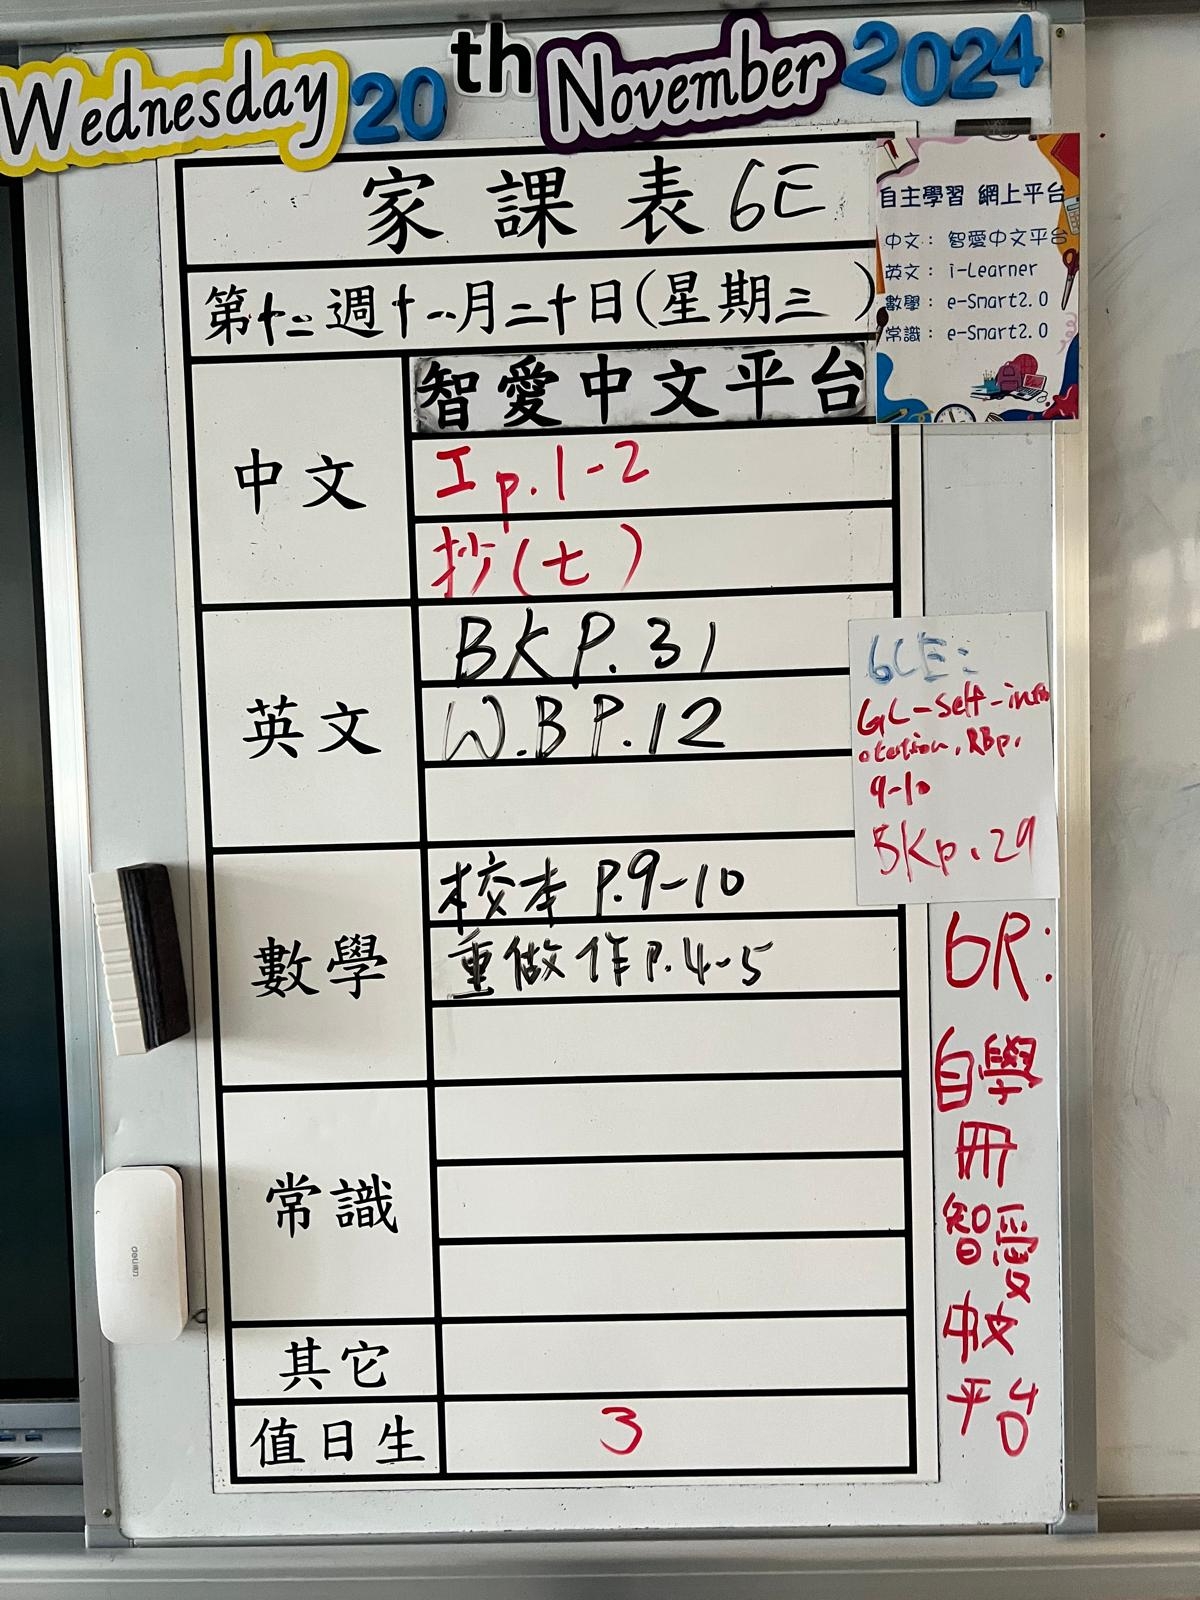 Wednesday 20th November 2024
家課表 6E
第十二週十一月二十日(星期三)
中文
智愛中文平台
工 p.1-2
抄(七)
英文
BK P. 31
W.B P.12
數學
校本 P.9-10
重做作 P.4-5
常識
其它
值日生
3
自主學習 網上平台
中文: 智愛中文平台
英文: i-Learner
數學: e-Smart2.0
常識: e-Smart2.0
6CE:
GL-Self-
RBp.
9-10
BKp.29
6R:
自學
冊
智愛
中文
平台
deli